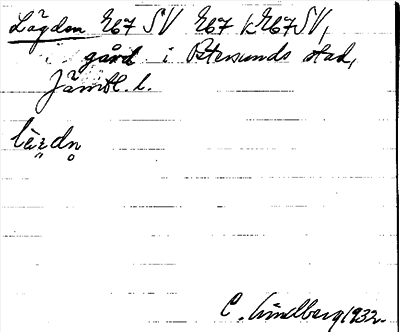 Lägden 267 SV 267 k 267 SV,
gård i Östersunds stad,
Jämtl. l.
C. Lindberg 1932.